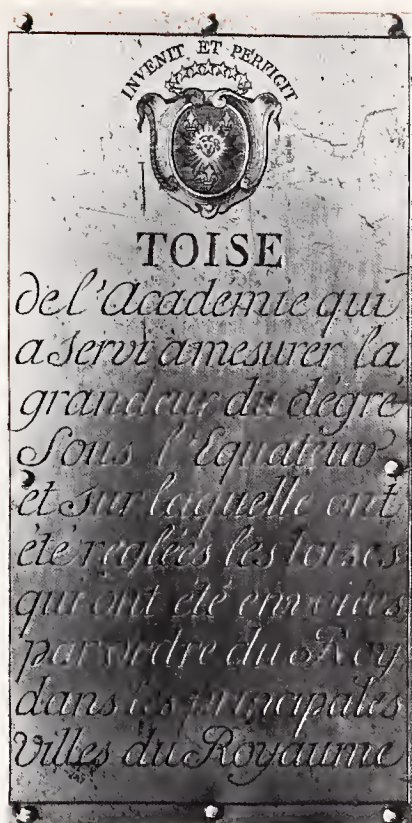 INVENIT ET PERFICIT
TOISE
de l'Académie qui
a Servi à mesurer la
grandeur du dégré
Sous l'Equateur
et sur laquelle ont
été reglées les toises
qui ont été envoiées
par ordre du Roy
dans les principales
Villes du Royaume